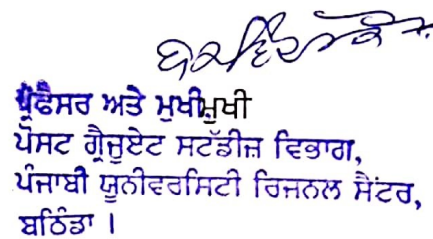 ਪ੍ਰੋਫੈਸਰ ਅਤੇ ਮੁਖੀਮੁਖੀ
ਪੋਸਟ ਗ੍ਰੈਜੁਏਟ ਸਟੱਡੀਜ਼ ਵਿਭਾਗ,
ਪੰਜਾਬੀ ਯੂਨੀਵਰਸਿਟੀ ਰਿਜਨਲ ਸੈਂਟਰ,
ਬਠਿੰਡਾ ।